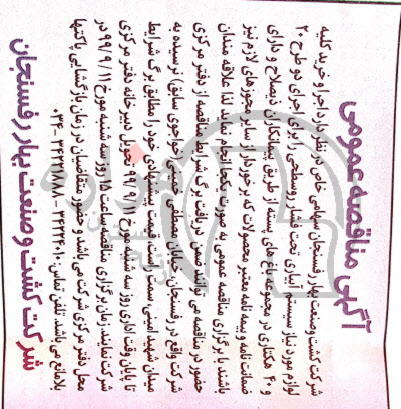 آگهی مناقصه عمومی
شرکت کشت وصنعت بهار رفسنجان سهامی خاص در نظر دارد اجرا و خرید کلیه
لوازم مورد نیاز سیستم آبیاری تحت فشار روسطحی را برای اجرای دو طرح ۲۰
و ۴۰ هکتاری در مجموعه باغ های پسته از طریق پیمانکاران ذیصلاح و دارای
ضمانت نامه و بیمه نامه معتبر محصولات که برخوردار از سایر مجوزهای لازم نیز
باشند با برگزاری مناقصه عمومی به صورت یکجا انجام نماید لذا علاقه مندان
حضور در مناقصه می توانند ضمن دریافت برگ شرایط مناقصه از دفتر مرکزی
شرکت واقع در رفسنجان، خیابان مصطفی خمینی(خواجوی سابق) نرسیده به
میدان شهید امینی، سمت راست، قیمت پیشنهادی خود را مطابق برگ شرایط
تا پایان وقت اداری روز سه شنبه مورخ ۹۹/۹/۱۱ تحویل دبیرخانه دفتر مرکزی
شرکت نمایند. زمان برگزاری مناقصه ساعت ۱۵ روز سه شنبه مورخ ۹۹/۹/۱۱ در
محل دفتر مرکزی شرکت می باشد و حضور متقاضیان در زمان بازگشایی پاکتها
بلامانع می باشد. تلفن تماس: ۳۴۲۲۴۰۱۰ - ۳۴۲۲۱۸۸۸ -۰۳۴
شرکت کشت و صنعت بهار رفسنجان